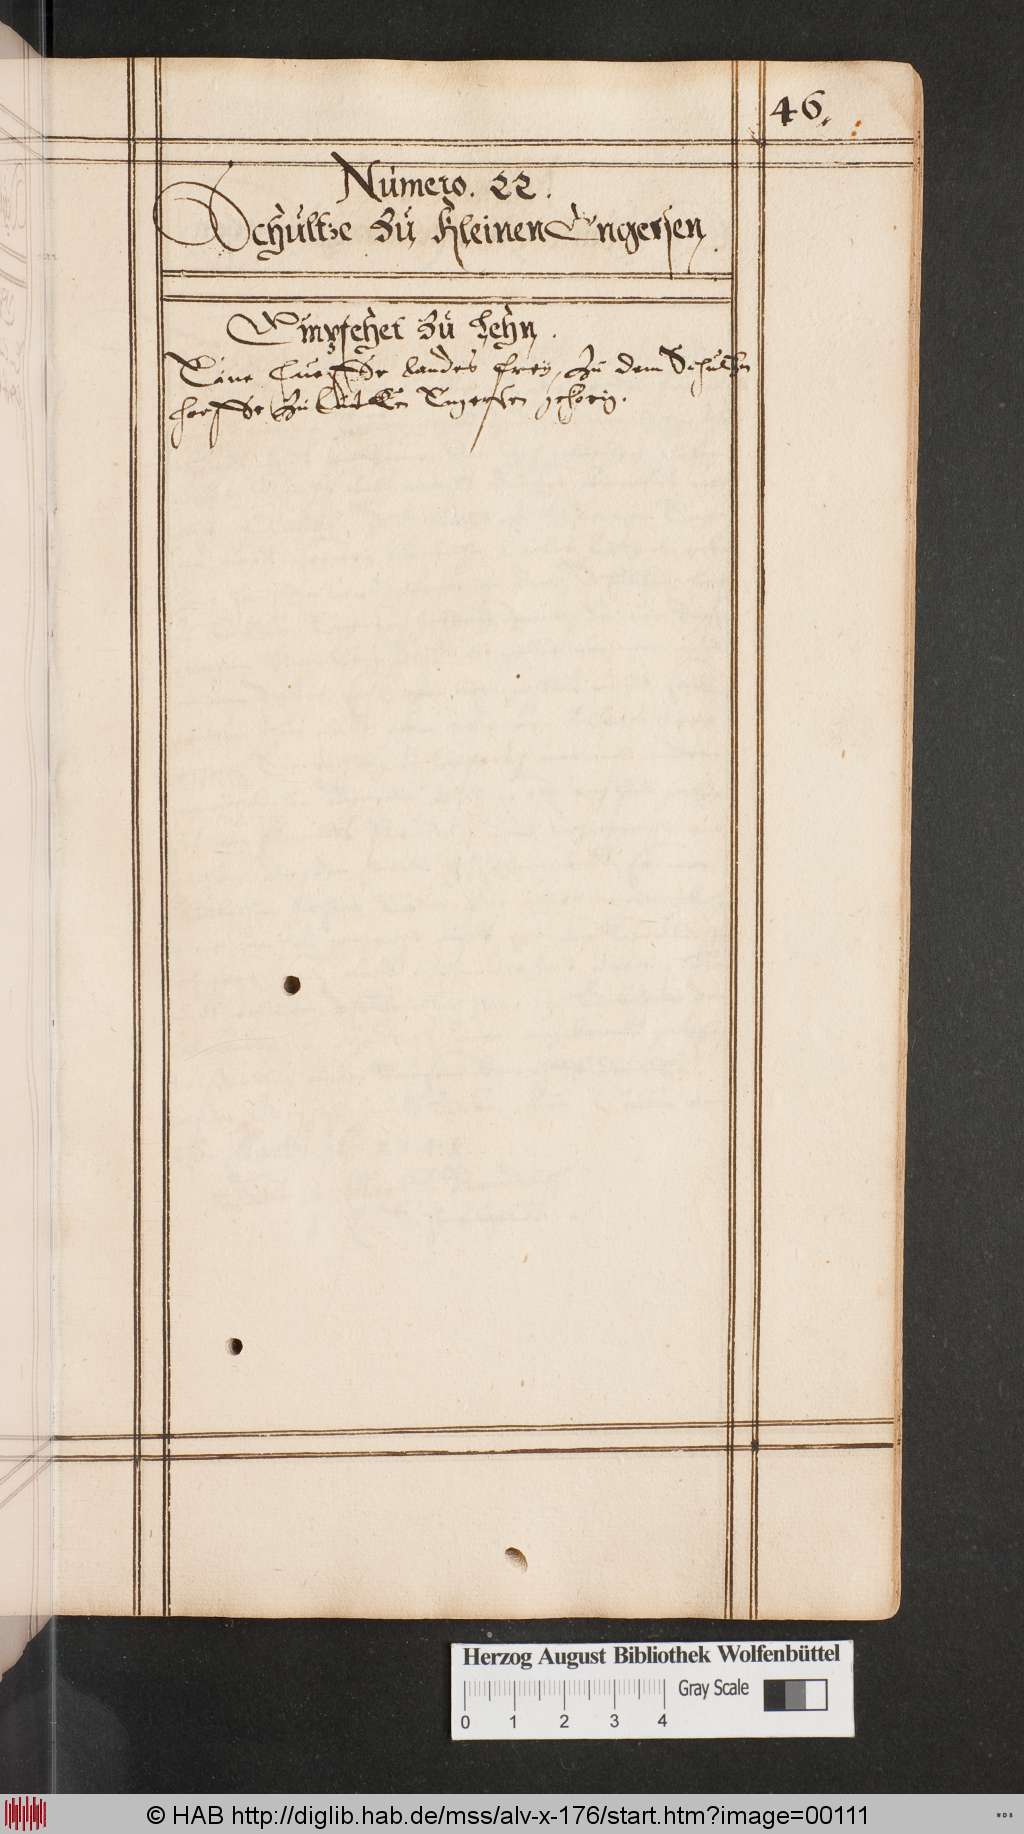 46.
Numero. 22.
Schultze zu Kleinen Engersen
Empfehet zu Lehn.
Eine Hueffe landes frey, zu dem Schultzen
hoffe zu Lütken Engersen gehorig.
Herzog August Bibliothek Wolfenbüttel
Gray Scale
0 1 2 3 4
© HAB http://diglib.hab.de/mss/alv-x-176/start.htm?image=00111